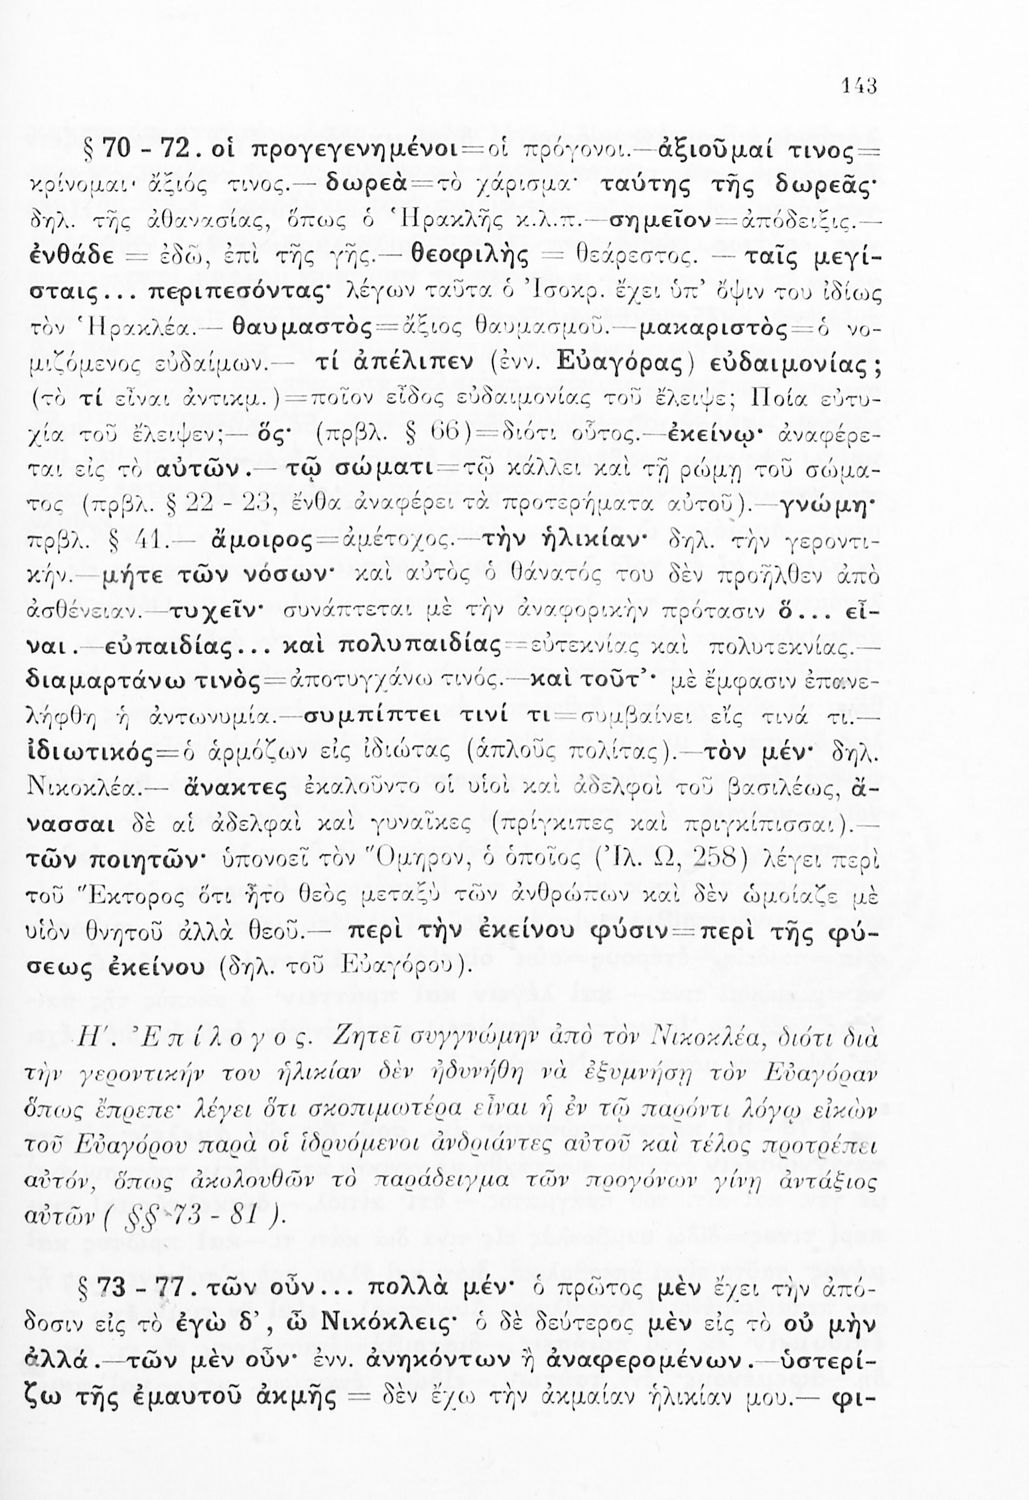 143
§ 70 - 72. οἱ προγεγενημένοι=οἱ πρόγονοι.—ἀξιοῦμαί τινος=
κρίνομαι· ἄξιός τινος.— δωρεὰ=τὸ χάρισμα· ταύτης τῆς δωρεᾶς·
δηλ. τῆς ἀθανασίας, ὅπως ὁ Ἡρακλῆς κ.λ.π.—σημεῖον=ἀπόδειξις.—
ἐνθάδε = ἐδῶ, ἐπὶ τῆς γῆς.— θεοφιλὴς = θεάρεστος. — ταῖς μεγί-
σταις... περιπεσόντας· λέγων ταῦτα ὁ Ἰσοκρ. ἔχει ὑπ’ ὄψιν του ἰδίως
τὸν Ἡρακλέα.— θαυμαστὸς=ἄξιος θαυμασμοῦ.—μακαριστὸς=ὁ νο-
μιζόμενος εὐδαίμων.— τί ἀπέλιπεν (ἐνν. Εὐαγόρας) εὐδαιμονίας;
(τὸ τί εἶναι ἀντικμ.)=ποῖον εἶδος εὐδαιμονίας τοῦ ἔλειψε; Ποία εὐτυ-
χία τοῦ ἔλειψεν;— ὅς· (πρβλ. § 66)=διότι οὗτος.—ἐκείνῳ· ἀναφέρε-
ται εἰς τὸ αὐτῶν.— τῷ σώματι=τῷ κάλλει καὶ τῇ ρώμῃ τοῦ σώμα-
τος (πρβλ. § 22 - 23, ἔνθα ἀναφέρει τὰ προτερήματα αὐτοῦ).—γνώμη·
πρβλ. § 41.— ἄμοιρος=ἀμέτοχος.—τὴν ἡλικίαν· δηλ. τὴν γεροντι-
κήν.—μήτε τῶν νόσων· καὶ αὐτὸς ὁ θάνατός του δὲν προῆλθεν ἀπὸ
ἀσθένειαν.—τυχεῖν· συνάπτεται μὲ τὴν ἀναφορικὴν πρότασιν ὅ... εἶ-
ναι.—εὐπαιδίας... καὶ πολυπαιδίας=εὐτεκνίας καὶ πολυτεκνίας.—
διαμαρτάνω τινὸς=ἀποτυγχάνω τινός.—καὶ τοῦτ’· μὲ ἔμφασιν ἐπανε-
λήφθη ἡ ἀντωνυμία.—συμπίπτει τινί τι=συμβαίνει εἴς τινά τι.—
ἰδιωτικός=ὁ ἁρμόζων εἰς ἰδιώτας (ἁπλοῦς πολίτας).—τὸν μέν· δηλ.
Νικοκλέα.— ἄνακτες ἐκαλοῦντο οἱ υἱοὶ καὶ ἀδελφοὶ τοῦ βασιλέως, ἄ-
νασσαι δὲ αἱ ἀδελφαὶ καὶ γυναῖκες (πρίγκιπες καὶ πριγκίπισσαι).—
τῶν ποιητῶν· ὑπονοεῖ τὸν Ὅμηρον, ὁ ὁποῖος (Ἰλ. Ω, 258) λέγει περὶ
τοῦ Ἕκτορος ὅτι ἦτο θεὸς μεταξὺ τῶν ἀνθρώπων καὶ δὲν ὡμοίαζε μὲ
υἱὸν θνητοῦ ἀλλὰ θεοῦ.— περὶ τὴν ἐκείνου φύσιν=περὶ τῆς φύ-
σεως ἐκείνου (δηλ. τοῦ Εὐαγόρου).
Η΄. Ἐπίλογος. Ζητεῖ συγγνώμην ἀπὸ τὸν Νικοκλέα, διότι διὰ
τὴν γεροντικήν του ἡλικίαν δὲν ἠδυνήθη νὰ ἐξυμνήσῃ τὸν Εὐαγόραν
ὅπως ἔπρεπε· λέγει ὅτι σκοπιμωτέρα εἶναι ἡ ἐν τῷ παρόντι λόγῳ εἰκὼν
τοῦ Εὐαγόρου παρὰ οἱ ἱδρυόμενοι ἀνδριάντες αὐτοῦ καὶ τέλος προτρέπει
αὐτόν, ὅπως ἀκολουθῶν τὸ παράδειγμα τῶν προγόνων γίνῃ ἀντάξιος
αὐτῶν ( §§ 73 - 81 ).
§ 73 - 77. τῶν οὖν... πολλὰ μέν· ὁ πρῶτος μὲν ἔχει τὴν ἀπό-
δοσιν εἰς τὸ ἐγὼ δ’, ὦ Νικόκλεις· ὁ δὲ δεύτερος μὲν εἰς τὸ οὐ μὴν
ἀλλά.—τῶν μὲν οὖν· ἐνν. ἀνηκόντων ἢ ἀναφερομένων.—ὑστερί-
ζω τῆς ἐμαυτοῦ ἀκμῆς = δὲν ἔχω τὴν ἀκμαίαν ἡλικίαν μου.— φι-